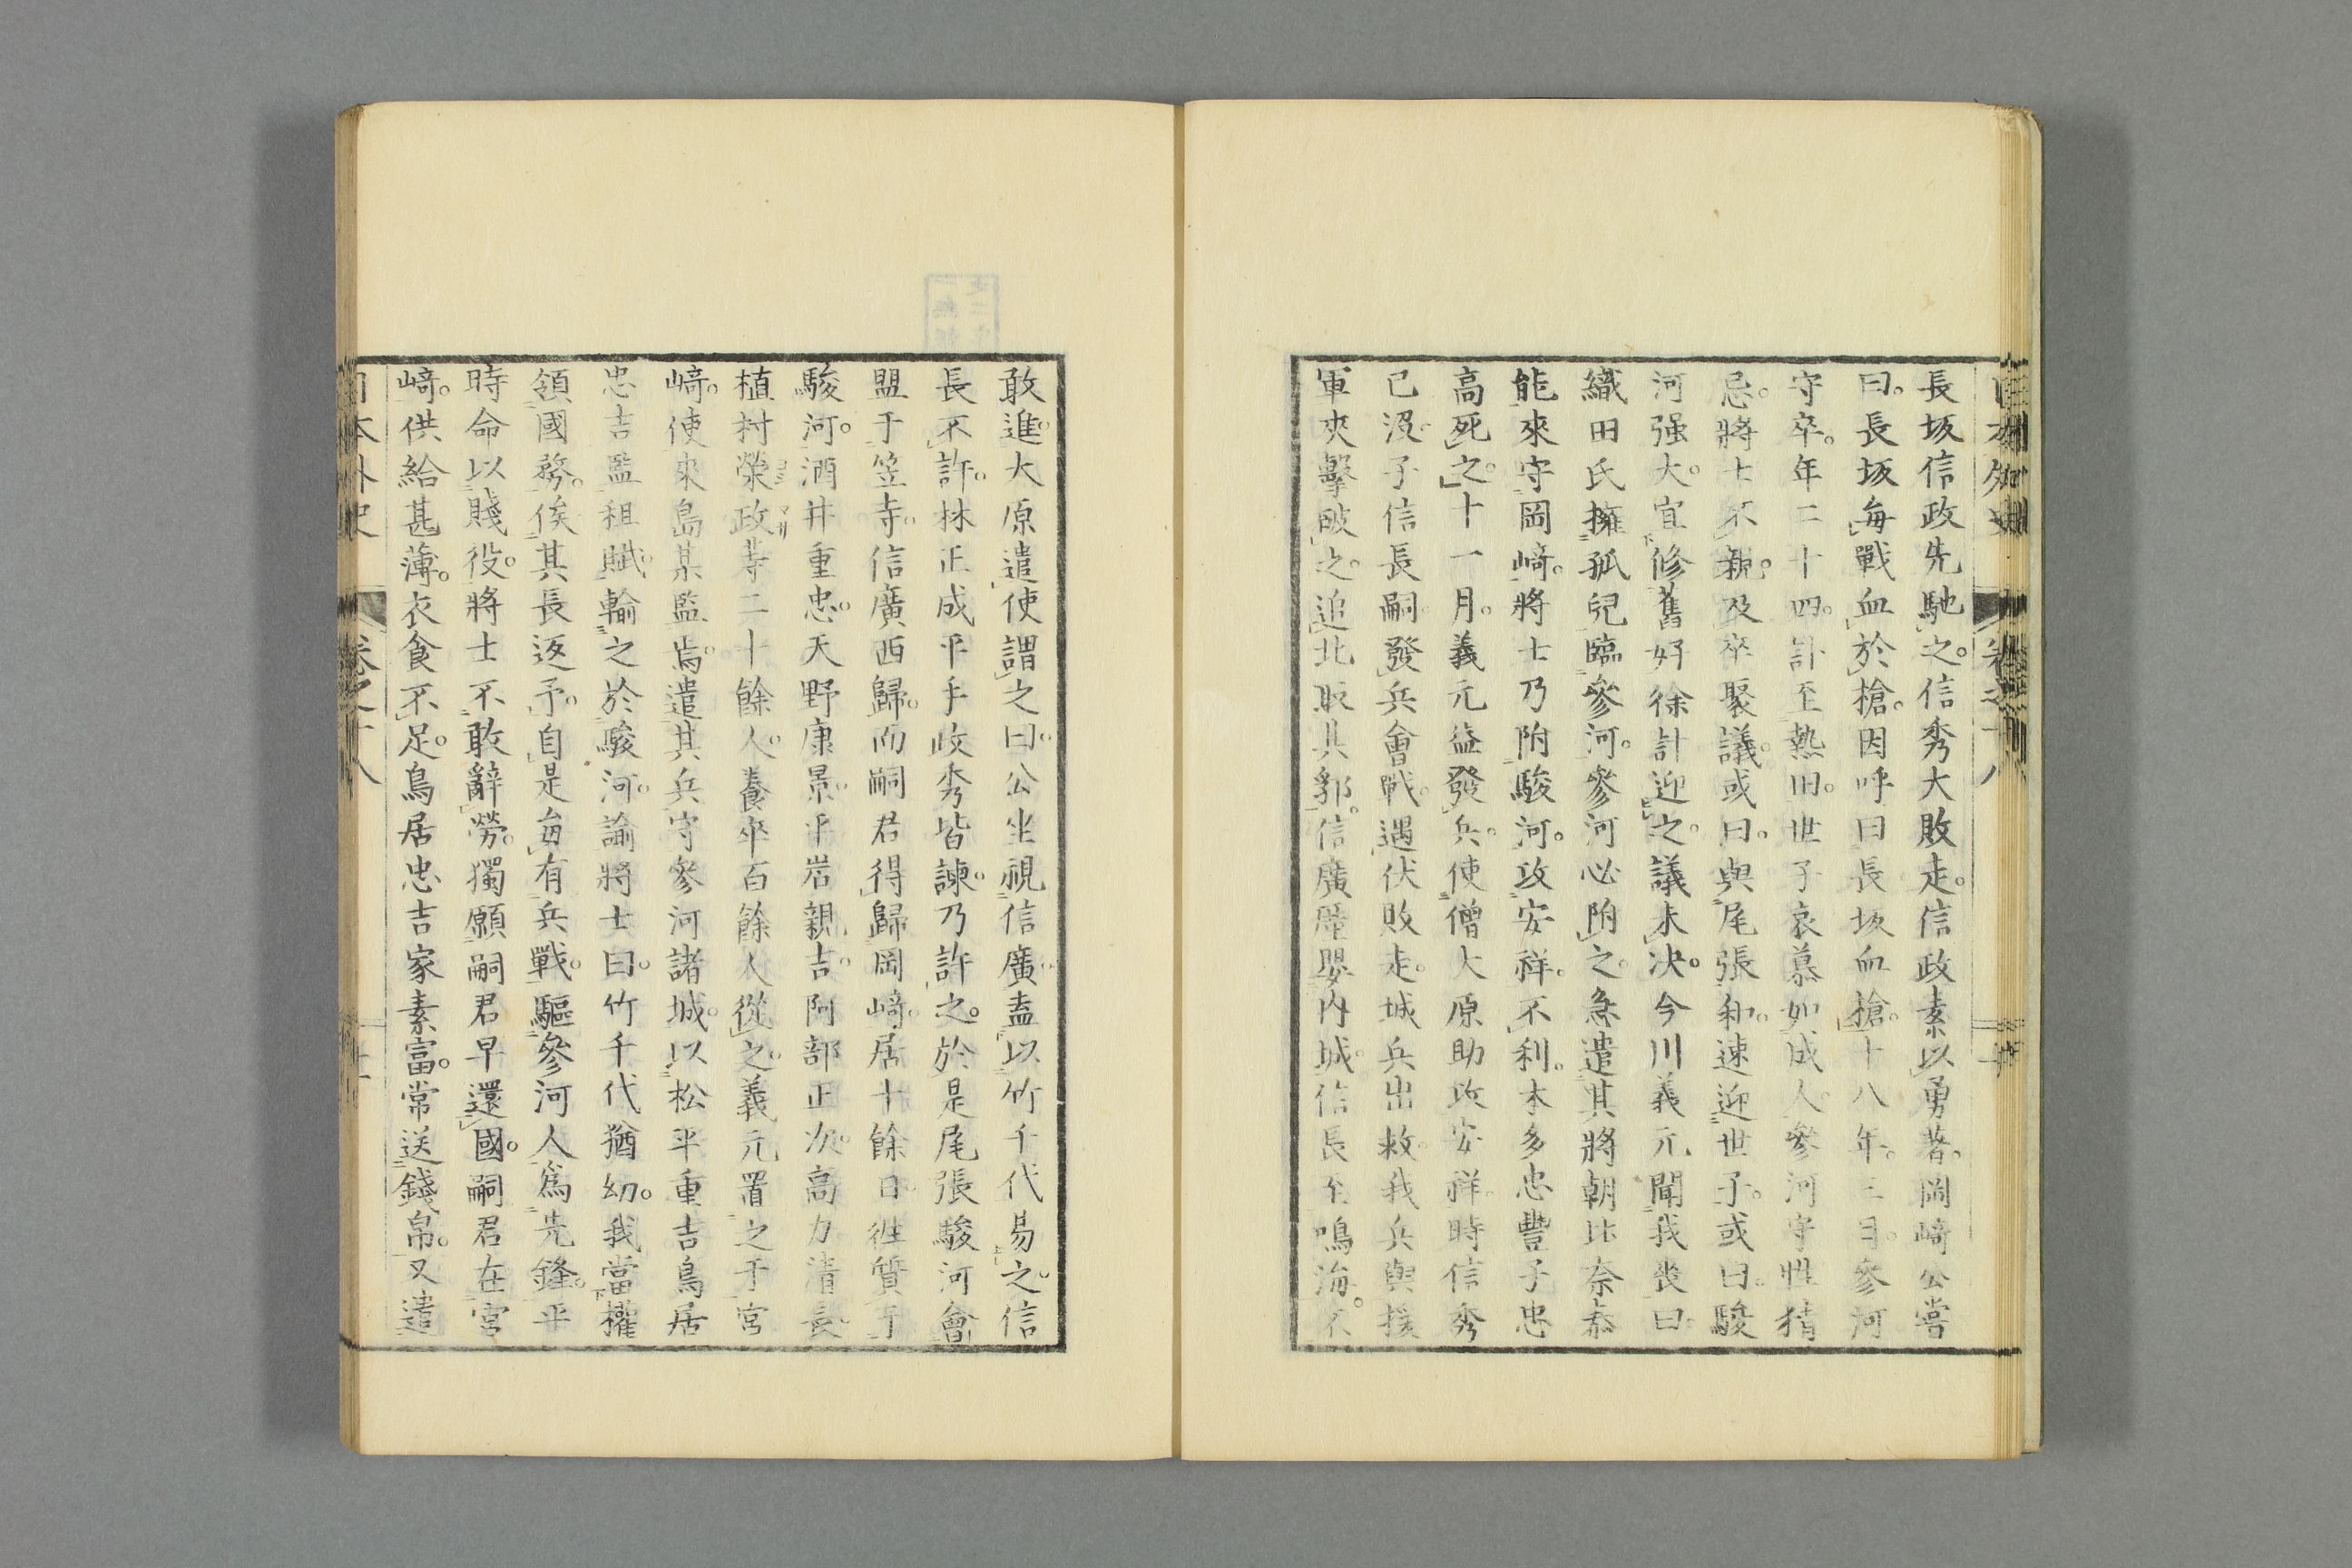 長坂信政先馳之。信秀大敗走。信政素以勇著。岡﨑公嘗
曰。長坂每戰血於槍。因呼曰長坂血槍。十八年。三月。參河
守卒。年二十四。訃至熱田。世子哀慕如成人。參河守性猜
忌。將士不親。及卒聚議。或曰。與尾張和。速迎世子。或曰。駿
河强大。宜修舊好徐計迎之。議未决。今川義元聞我喪曰。
織田氏擁孤兒臨參河。參河必附之。急遣其將朝比奈泰
能來守岡﨑。將士乃附駿河。攻安祥。不利。本多忠豐子忠
高死之。十一月。義元益發兵。使僧大原助攻安祥。時信秀
已沒。子信長嗣發兵會戰。遇伏敗走。城兵出救。我兵與援
軍夾擊敗之。追北取其郛。信廣壁嬰內城。信長至鳴海。不
敢進。大原遣使謂之曰。公坐視信廣。盍以竹千代易之。信
長不許。林正成平手政秀皆諫。乃許之。於是尾張駿河會
盟于笠寺。信廣西歸。而嗣君得歸岡﨑。居十餘日。徃質于
駿河。酒井重忠。天野康景。平岩親吉。阿部正次。高力清長。
植村榮政等二十餘人。養卒百餘人從之。義元置之于宮
﨑。使來島某監焉。遣其兵守參河諸城。以松平重吉鳥居
忠吉監租賦。輸之於駿河。諭將士曰。竹千代猶幼。我當權
領國務。俟其長返予。自是每有兵戰。驅參河人爲先鋒。平
時命以賤役。將士不敢辭勞。獨願嗣君早還國。嗣君在宮
﨑。供給甚薄。衣食不足。鳥居忠吉家素富。常送錢帛。又遣
日本外史 卷之十八